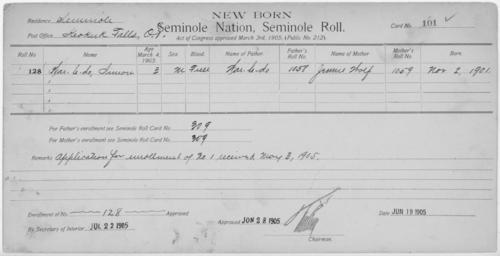 NEW BORN
Residence Seminole
Seminole Nation, Seminole Roll.
Card No. 101
Post Office Keokuk Falls, O.T.
Act of Congress approved March 3rd, 1905, (Public No. 212).
Roll No Name Age March 4, 1905 Sex Blood. Name of Father Father's Roll No. Name of Mother Mother's Roll No. Born.
128 Kar-le-do, Simon 3 M Full Kar-le-do 1058 Jennie Wolf 1059 Nov 2, 1901
For Father's enrollment see Seminole Roll Card No. 309
For Mother's enrollment see Seminole Roll Card No. 309
Remarks Application for enrollment of No 1 received May 3, 1905.
Enrollment of No. 128 Approved
Approved JUN 28 1905
Date JUN 19 1905
By Secretary of Interior JUL 22 1905
Chairman.